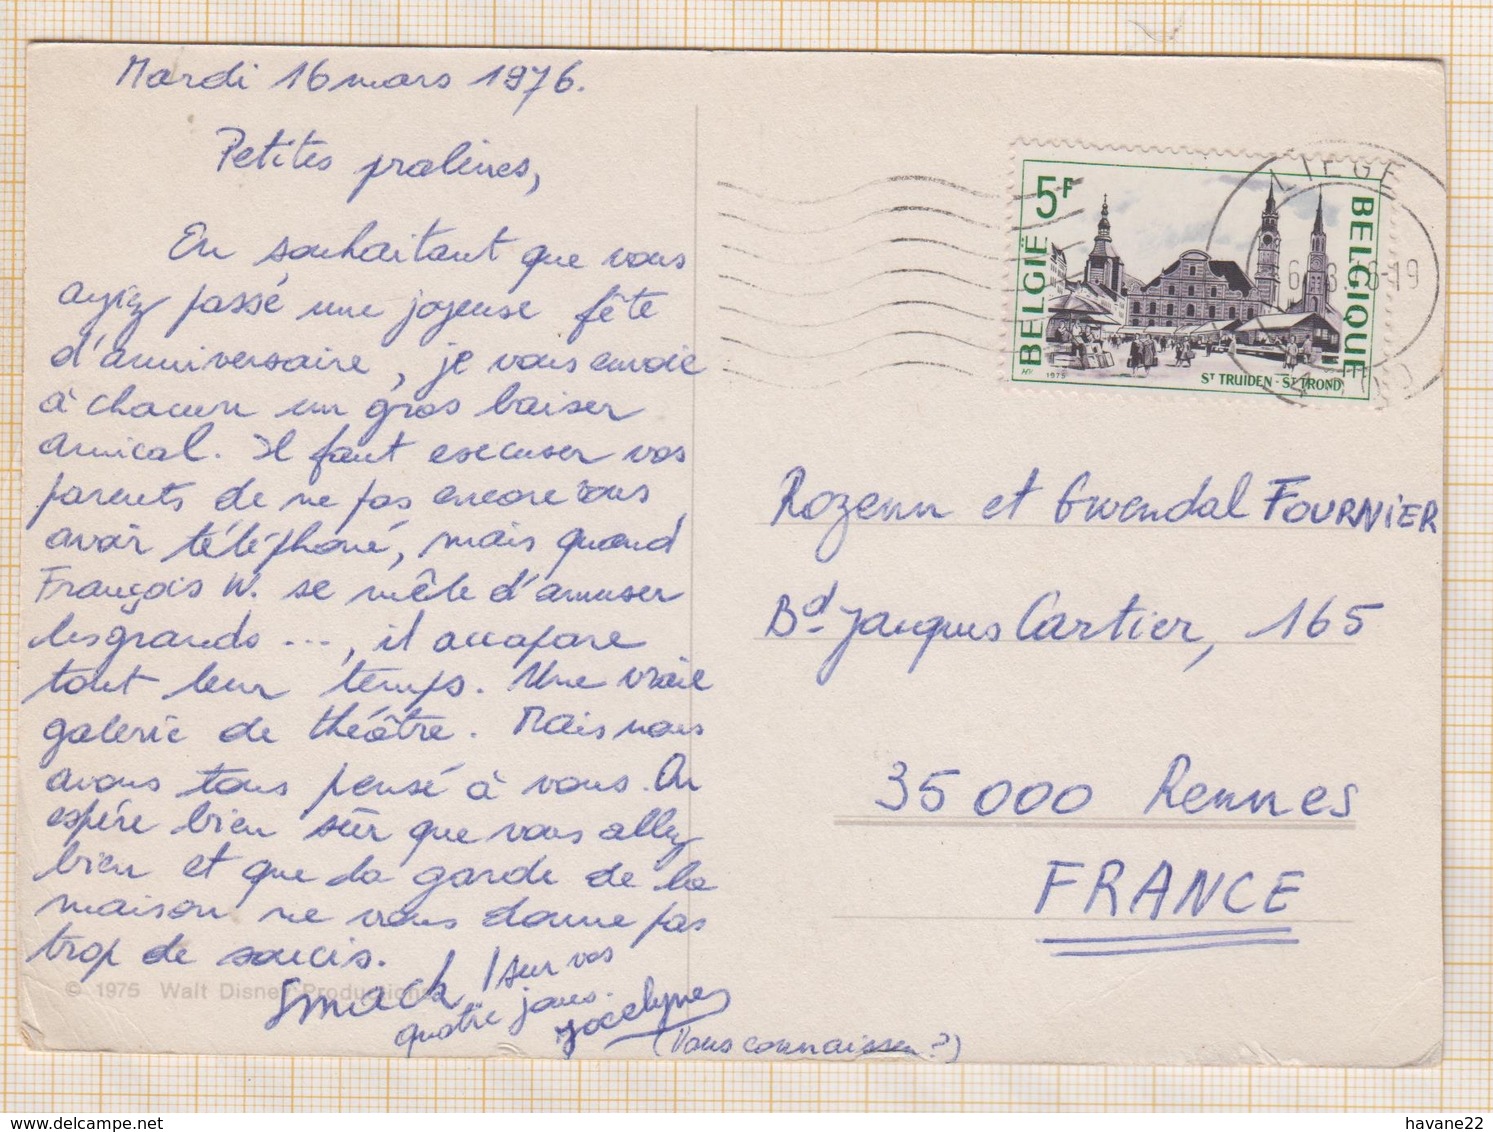 Mardi 16 mars 1976.
Petites pralines,
En souhaitant que vous
ayiez passé une joyeuse fête
d'anniversaire, je vous envoie
à chacun un gros baiser
amical. Il faut excuser vos
parents de ne pas encore vous
avoir téléphoné, mais quand
François W. se mêle d'amuser
les grands ..., il accapare
tout leur temps. Une vraie
galerie de théâtre. Mais nous
avons tous pensé à vous. On
espère bien sûr que vous allez
bien et que la garde de la
maison ne vous donne pas
trop de soucis.
Smack! sur vos
quatre joues.
Jocelyne
(Vous connaissez?)
© 1975 Walt Disney Productions
5F
BELGIË
BELGIQUE
HV 1975
ST TRUIDEN - ST TROND
LIEGE
Rozenn et Gwendal FOURNIER
Bd Jacques Cartier, 165
35000 Rennes
FRANCE
havane22